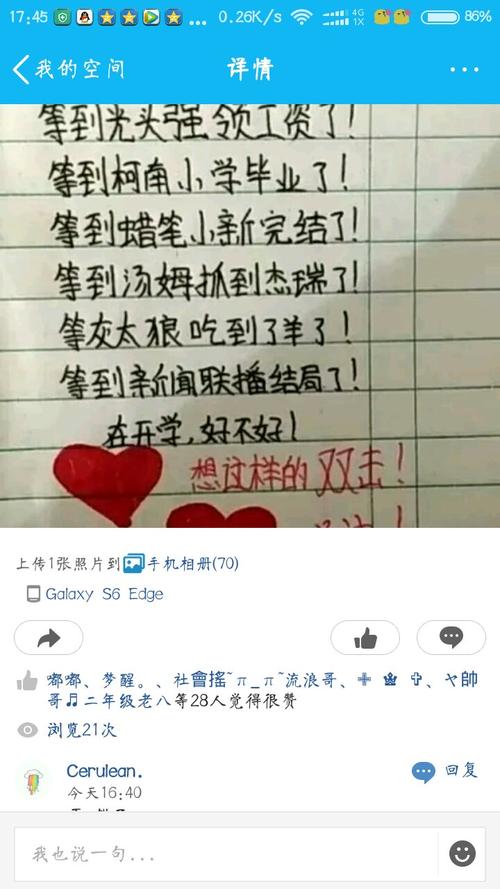 17:45
0.26K/s
4G
1X
86%
我的空间
详情
等到光头强领工资了!
等到柯南小学毕业了!
等到蜡笔小新完结了!
等到汤姆抓到杰瑞了!
等灰太狼吃到了羊了!
等到新闻联播结局了!
在开学,好不好!
想这样的双击!
上传1张照片到手机相册(70)
Galaxy S6 Edge
嘟嘟、梦醒。、社會搖~π_π~流浪哥、✙ ♚ ✞、ヤ帥
哥♬二年级老八等28人觉得很赞
浏览21次
Cerulean.
回复
今天16:40
我也说一句...